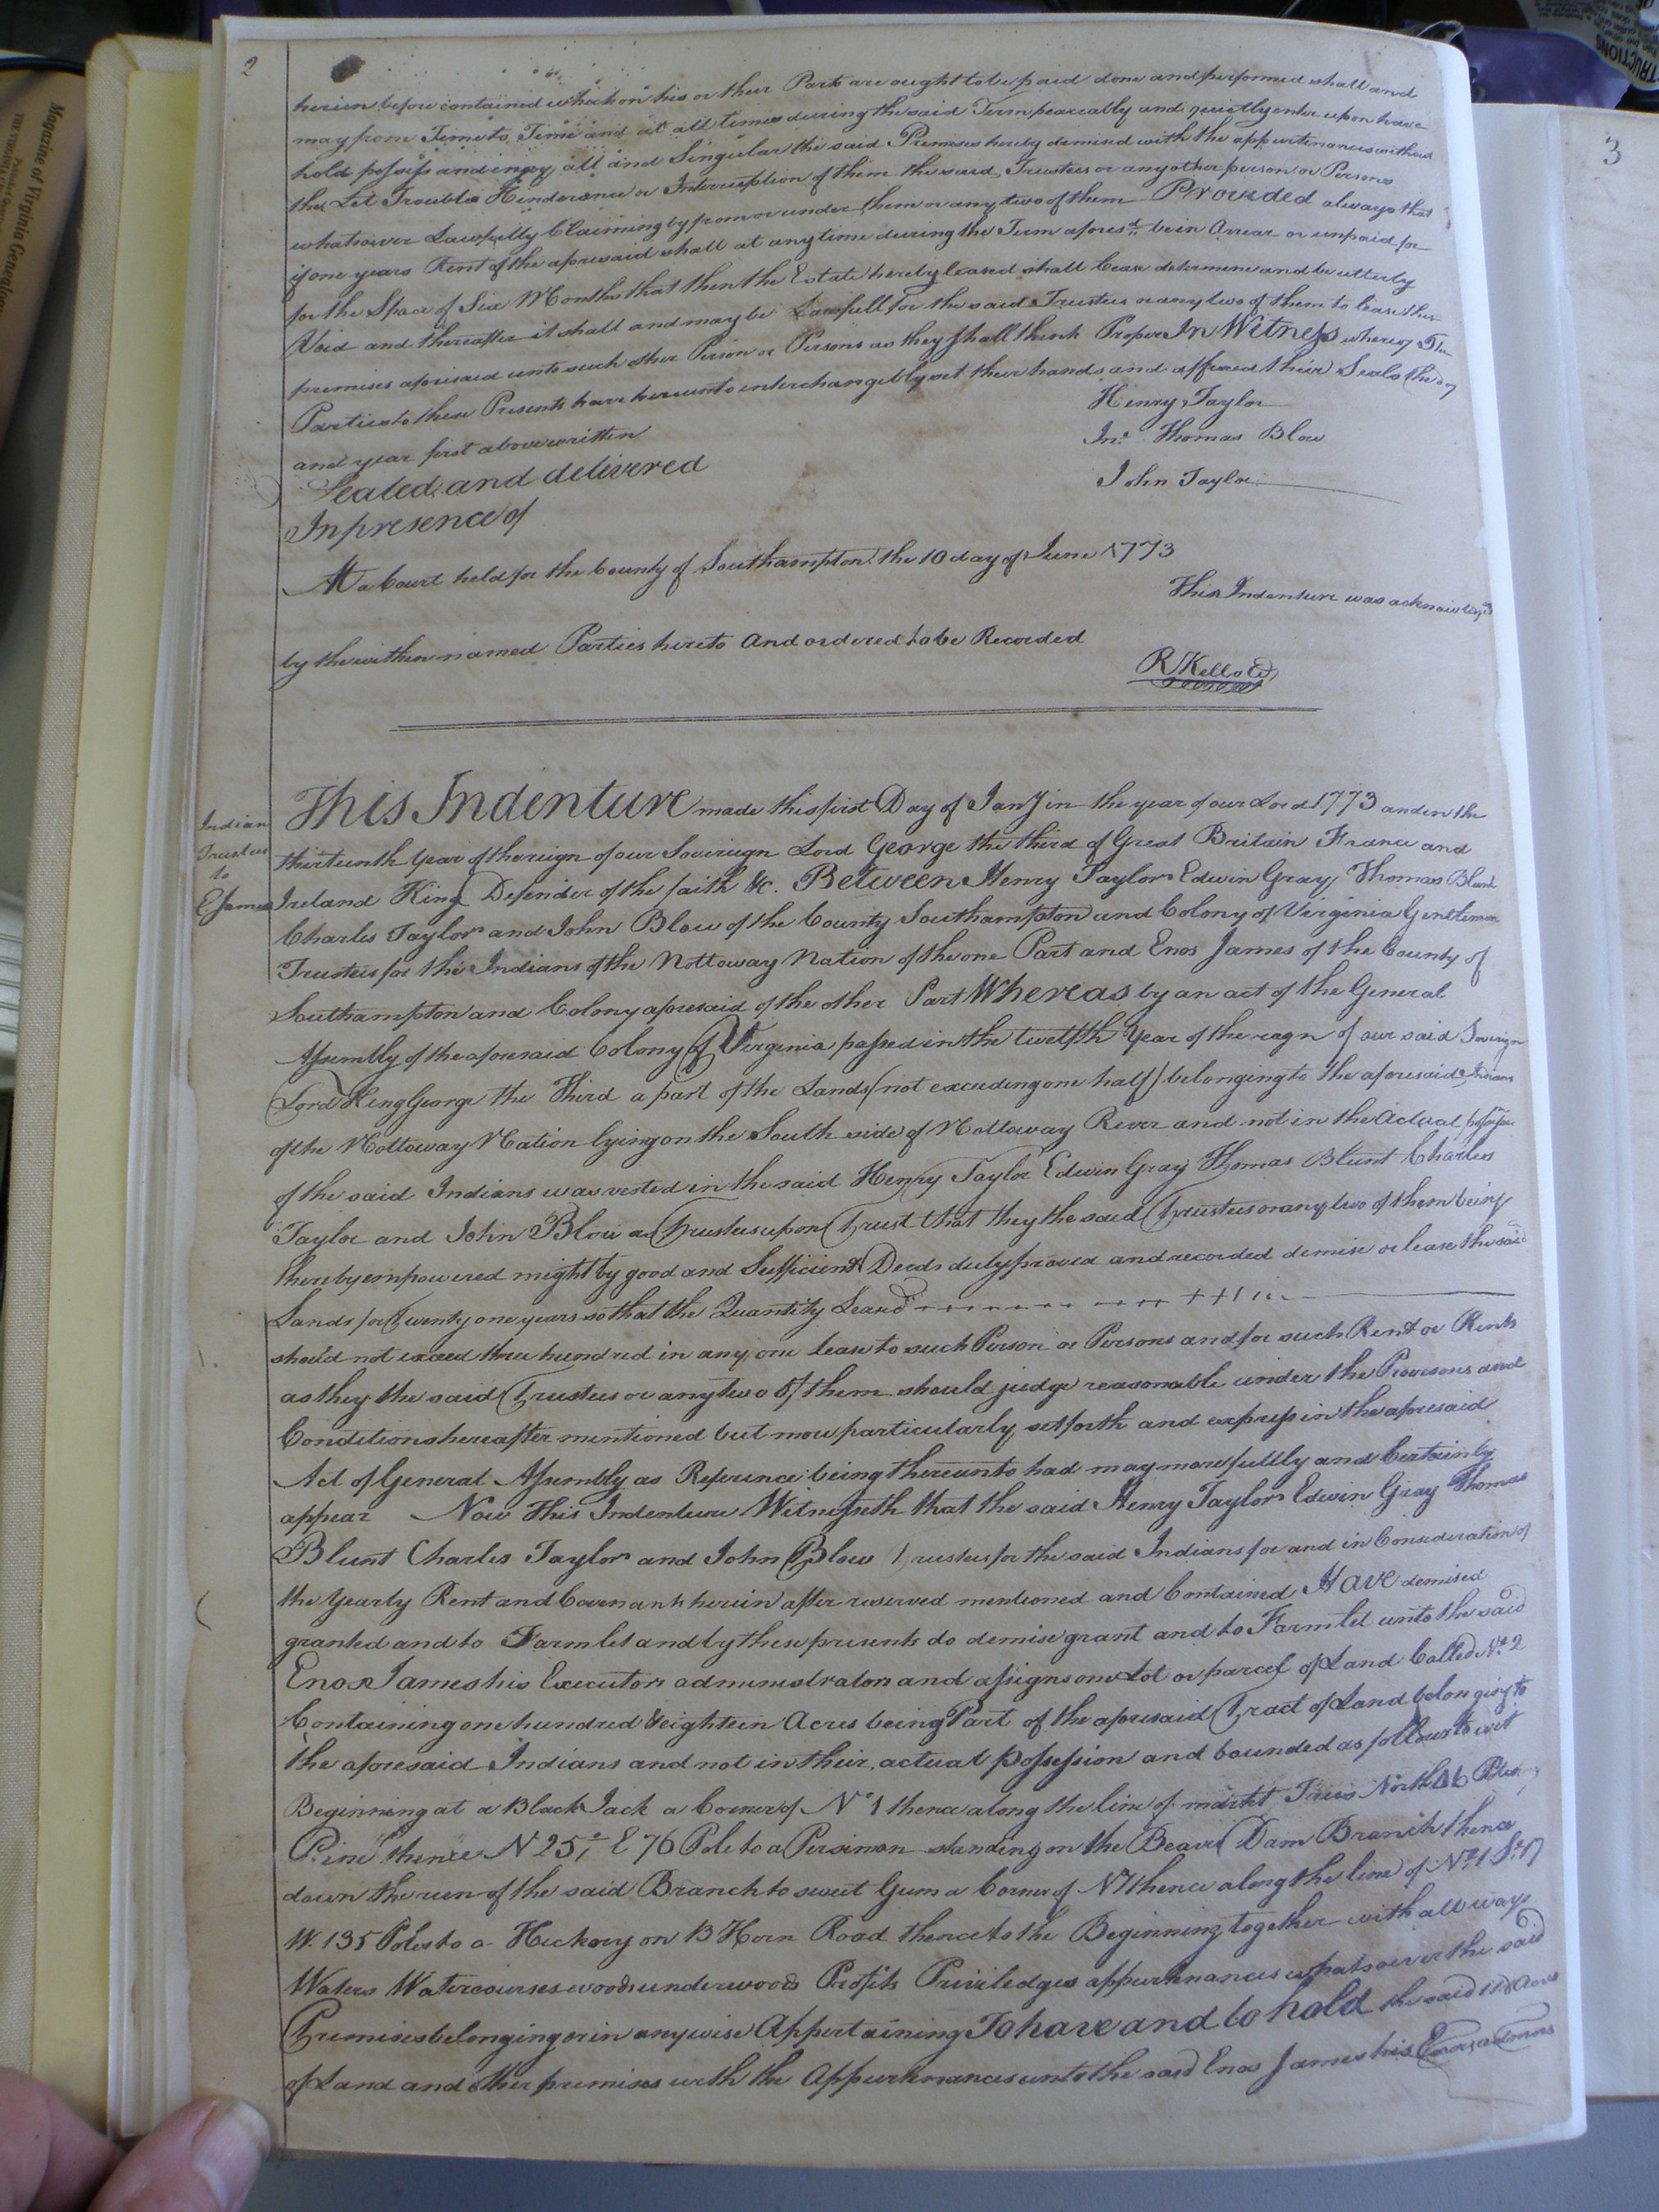 2
herein before contained which on his or their Parts are ought to be paid done and performed shall and
may from Time to Time and at all times during the said Term peaceably and quietly enter upon have
hold possess and enjoy all and Singular the said Premises hereby demised with the appurtenances without
the Let Trouble Hinderance or Interruption of them the said Trustees or any other person or Persons
whatsoever Lawfully Claiming by from or under them or any two of them Provided always that
if one years Rent of the aforesaid shall at any time during the Term afores.d be in Arrear or unpaid for
for the Space of Six Months that then the Estate hereby leased shall Cease determine and be utterly
Void and thereafter it shall and may be Lawfull for the said Trustees or any two of them to lease the
premises aforesaid unto such other Person or Persons as they shall think Proper In Witness whereof The
Parties to these Presents have hereunto interchangibly set their hands and affixed their Seals the day
and year first above written
Henry Taylor
Sealed and delivered
Jno. Thomas Blow
In presence of
John Taylor
At a Court held for the County of Southampton the 10 day of June 1773
This Indenture was acknowledged
by the within named Parties hereto And ordered to be Recorded
R Kello
Indian
Trustees
to
E James
This Indenture made this first Day of Jany in the year of our Lord 1773 and in the
thirteenth Year of the reign of our Sovereign Lord George the third of Great Britain France and
Ireland King Defender of the faith &c. Between Henry Taylor Edwin Gray Thomas Blunt
Charles Taylor and John Blow of the County Southampton and Colony of Virginia Gentlemen
Trustees for the Indians of the Nottoway Nation of the one Part and Enos James of the County of
Southampton and Colony aforesaid of the other Part Whereas by an act of the General
Assembly of the aforesaid Colony of Virginia passed in the twelfth Year of the regn of our said Sovereign
Lord King George the Third a part of the Lands (not exceeding one half) belonging to the aforesaid Indians
of the Nottoway Nation lying on the South side of Nottoway River and not in the Actual
of the said Indians was vested in the said Henry Taylor Edwin Gray Thomas Blunt Charles
Taylor and John Blow as Trustees upon Trust that they the said Trustees or any two of them being
thereby empowered might by good and Sufficient Deeds duly proved and recorded demise or lease the said
Lands for Twenty one years so that the Quantity Leasd
should not exceed three hundred in any one lease to such Person or Persons and for such Rent or Rents
as they the said Trustees or any two of them should judge reasonable under the Provisons and
Conditions hereafter mentioned but more particularly set forth and express in the aforesaid
Act of General Assembly as Reference being thereunto had may more fullly and Certainly
appear Now This Indenture Witnesseth that the said Henry Taylor Edwin Gray Thomas
Blunt Charles Taylor and John Blow Trustees for the said Indians for and in Consideration of
the Yearly Rent and Covenants herein after reserved mentioned and Contained Have demised
granted and to Farm let and by these presents do demise grant and to Farm let unto the said
Enos James his Executors administrators and assigns one Lot or parcel of Land Called No. 2
Containing one hundred & eighteen Acres being Part of the aforesaid Tract of Land belonging to
the aforesaid Indians and not in their actual possession and bounded as follows to wit
Beginning at a Black Jack a Corner of No 1 thence along the line of markt Trees North
Pine thence N 25 E 76 Pole to a Persimon standing on the Beaver Dam Branch thence
down the run of the said Branch to sweet Gum a Corner of No 1 thence along the line of No. 1 So. 17
W. 135 Poles to a Hickory on B Horn Road thence to the Beginning together with all ways
Waters Watercourses woods underwoods Profits Priviledges appurtenances whatsoever the said
Premises belonging or in any wise Appertaining To have and to hold the said 118 Acres
of Land and other premises with the Appurtenances unto the said Enos James his Exors admors
3
Magazine of Virginia Genealogy